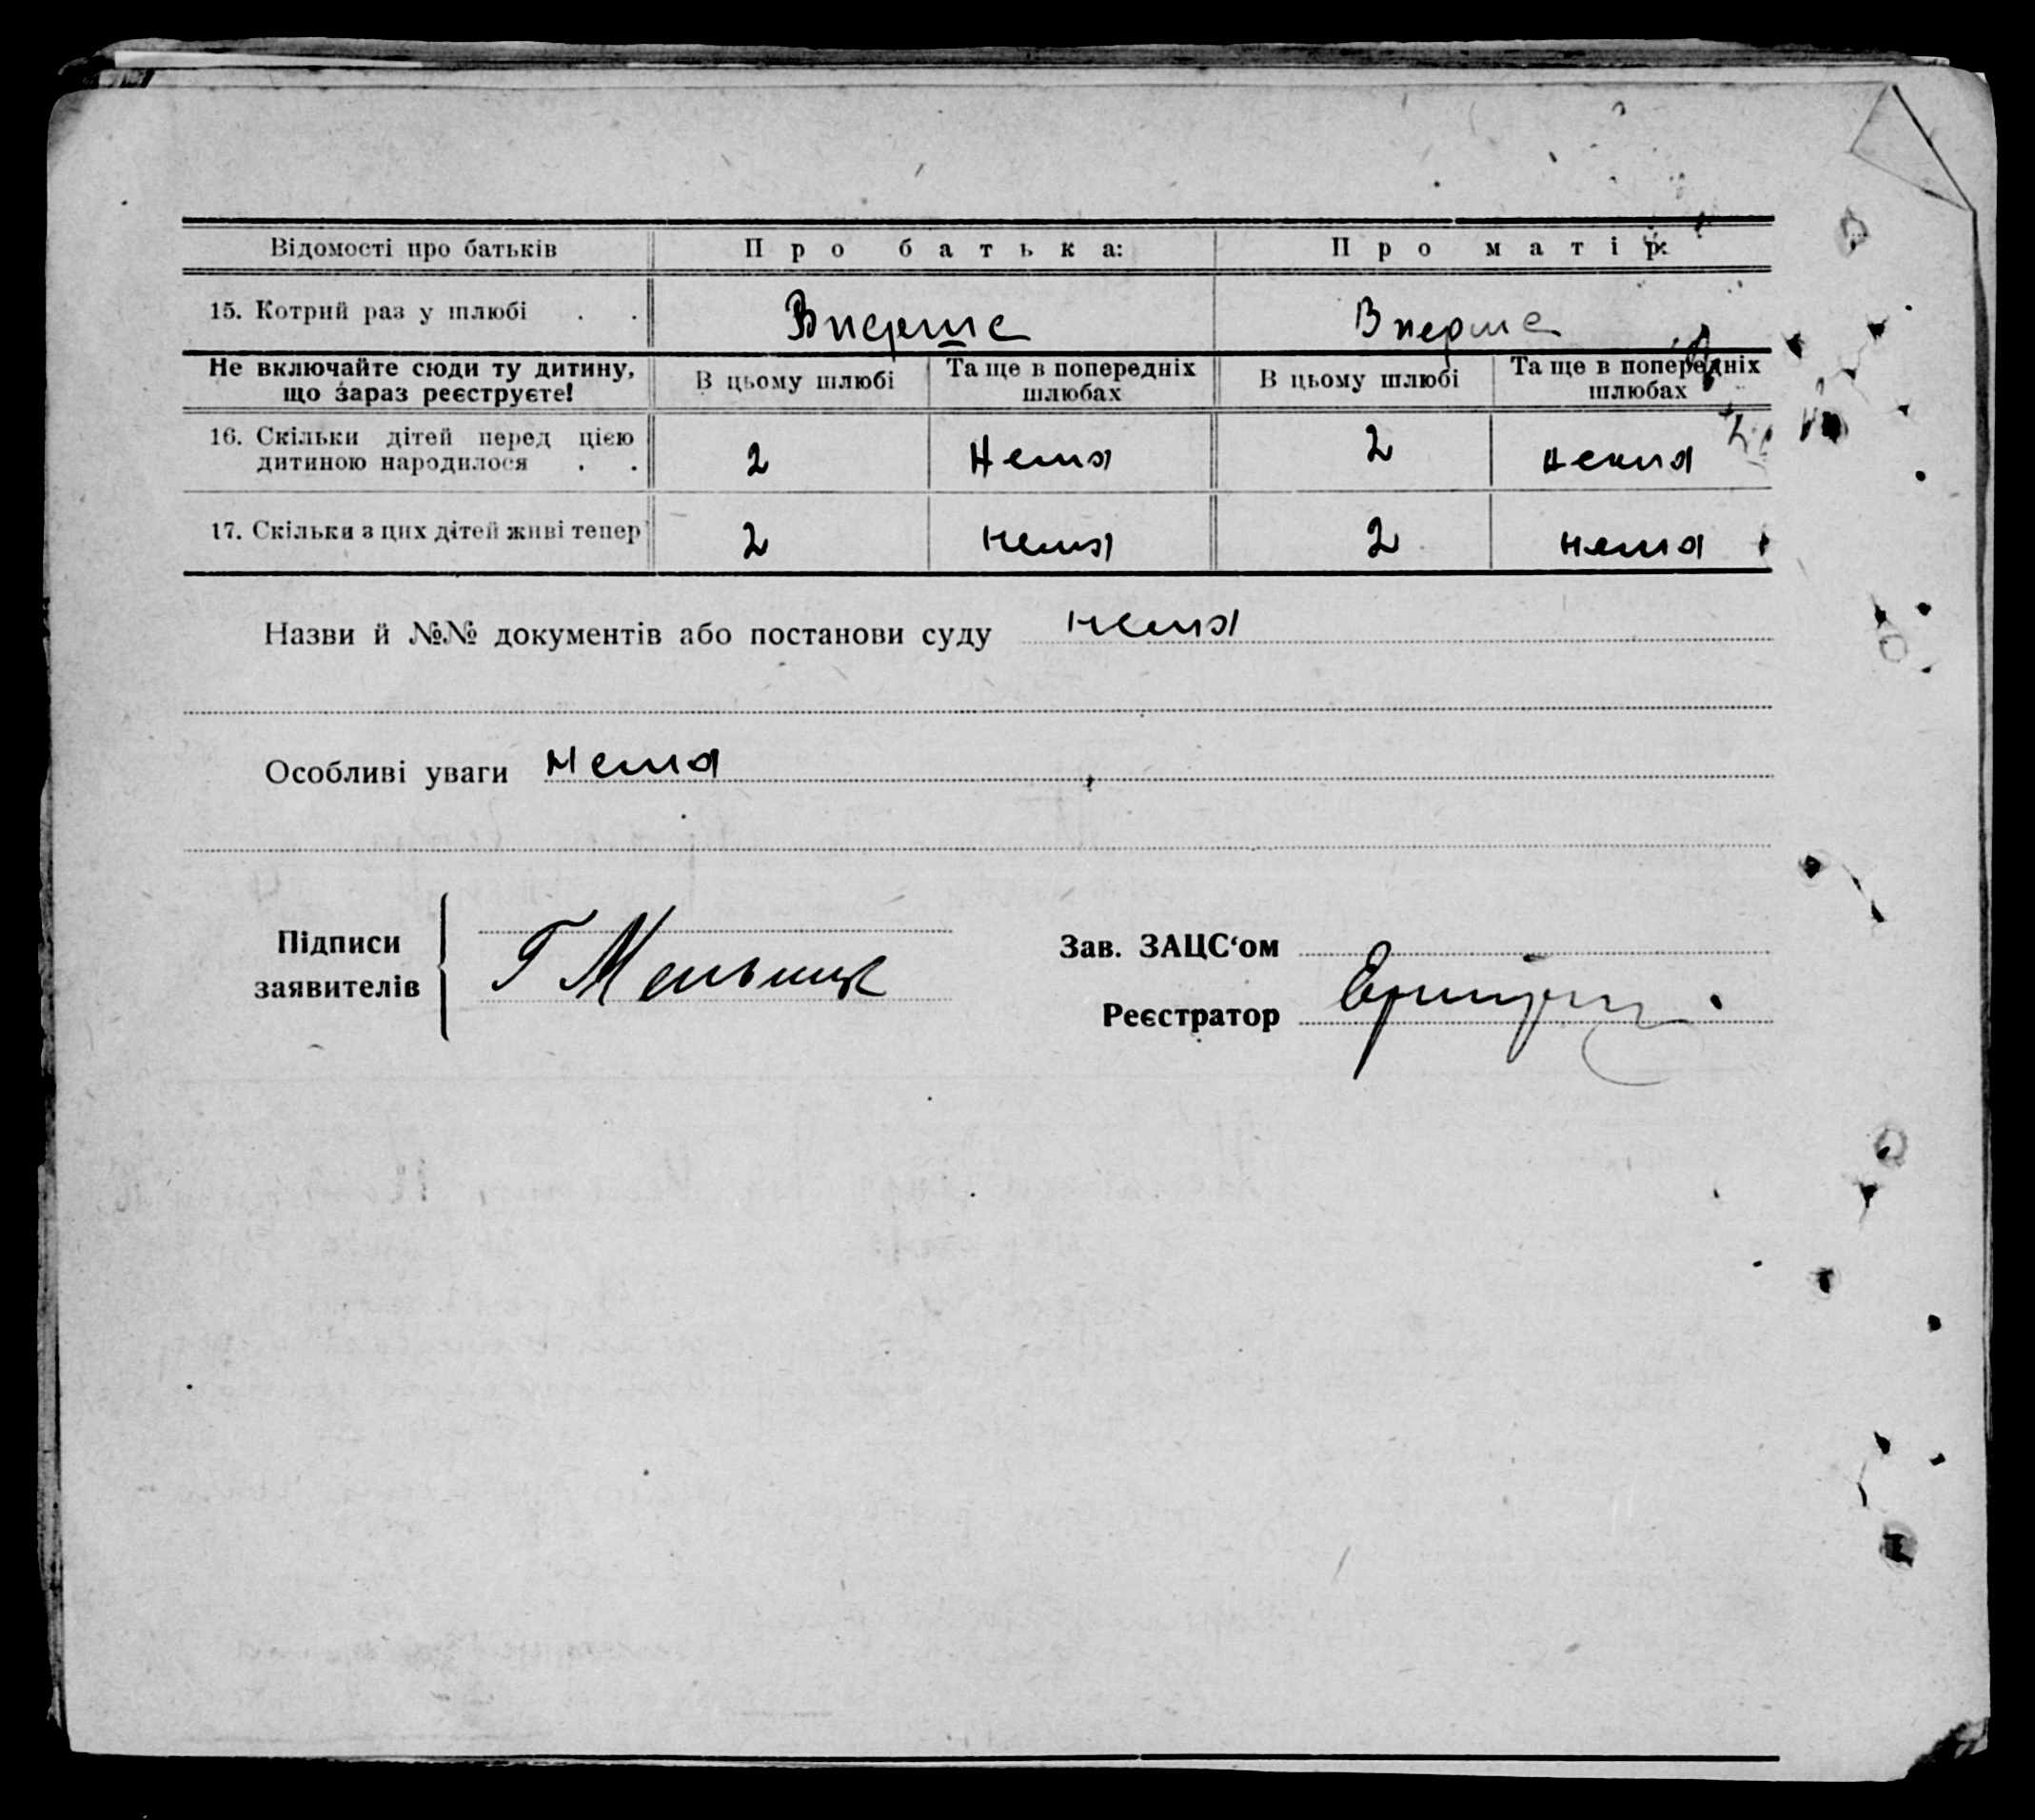 Відомості про батьків Про батька: Про матір:
15. Котрий раз у шлюбі . . Вперше Вперше
Не включайте сюди ту дитину, що зараз реєструєте! В цьому шлюбі Та ще в попередніх шлюбах В цьому шлюбі Та ще в попередніх шлюбах
16. Скільки дітей перед цією дитиною народилося . . 2 Нема 2 нема
17. Скільки з цих дітей живі тепер 2 нема 2 нема
Назви й №№ документів або постанови суду нема
Особливі уваги нема
Підписи заявителів Г Мельник
Зав. ЗАЦС‘ом
Реєстратор